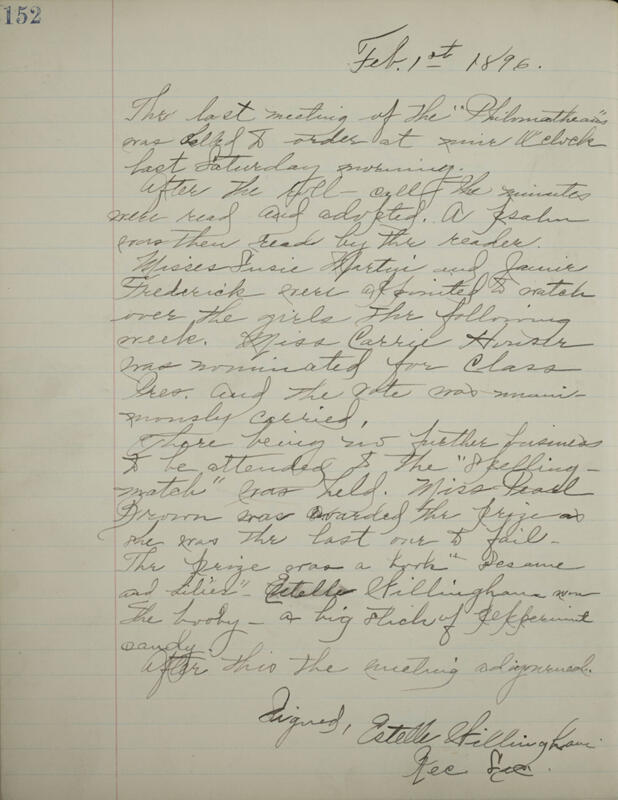 152
Feb. 1st 1896.
The last meeting of the "Philomatheans"
was called to order at nine O'clock
last Saturday morning.
After the roll-call the minutes
were read and adopted. A psalm
was then read by the reader.
Misses Susie Martyn and Janie
Frederick were appointed to watch
over the girls the following
week. Miss Carrie Houser
was nominated for Class
Pres. and the vote was unani-
mously carried.
There being no further business
to be attended to the "Spelling-
match" was held. Miss Pearl
Brown was awarded the prize as
she was the last one to fail-
The prize was a book "Sesame
and Lilies"- Estelle Killingham won
the booby- a big stick of peppermint
candy.
After this the meeting adjourned.
Signed, Estelle Killingham
Rec Sec.